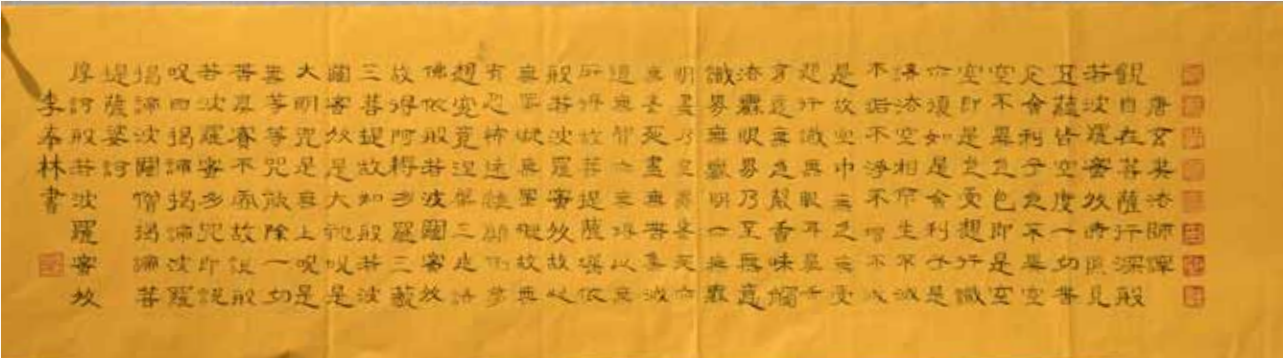 唐玄奘法師譯
觀自在菩薩行深般
若波羅蜜多時照見
五蘊皆空度一切苦
厄舍利子色不異空
空不異色色即是空
空即是色受想行識
亦復如是舍利子是
諸法空相不生不滅
不垢不淨不增不減
是故空中無色無受
想行識無眼耳鼻舌
身意無色聲香味觸
法無眼界乃至無意
識界無無明亦無無
明盡乃至無老死亦
無老死盡無苦集滅
道無智亦無得以無
所得故菩提薩埵依
般若波羅蜜多故心
無罣礙無罣礙故無
有恐怖遠離顛倒夢
想究竟涅槃三世諸
佛依般若波羅蜜多
故得阿耨多羅三藐
三菩提故知般若波
羅蜜多是大神咒是
大明咒是無上咒是
無等等咒能除一切
苦真實不虛故說般
若波羅蜜多咒即說
咒曰揭諦揭諦波羅
揭諦波羅僧揭諦菩
提薩婆訶
摩訶般若波羅蜜多
李本林書